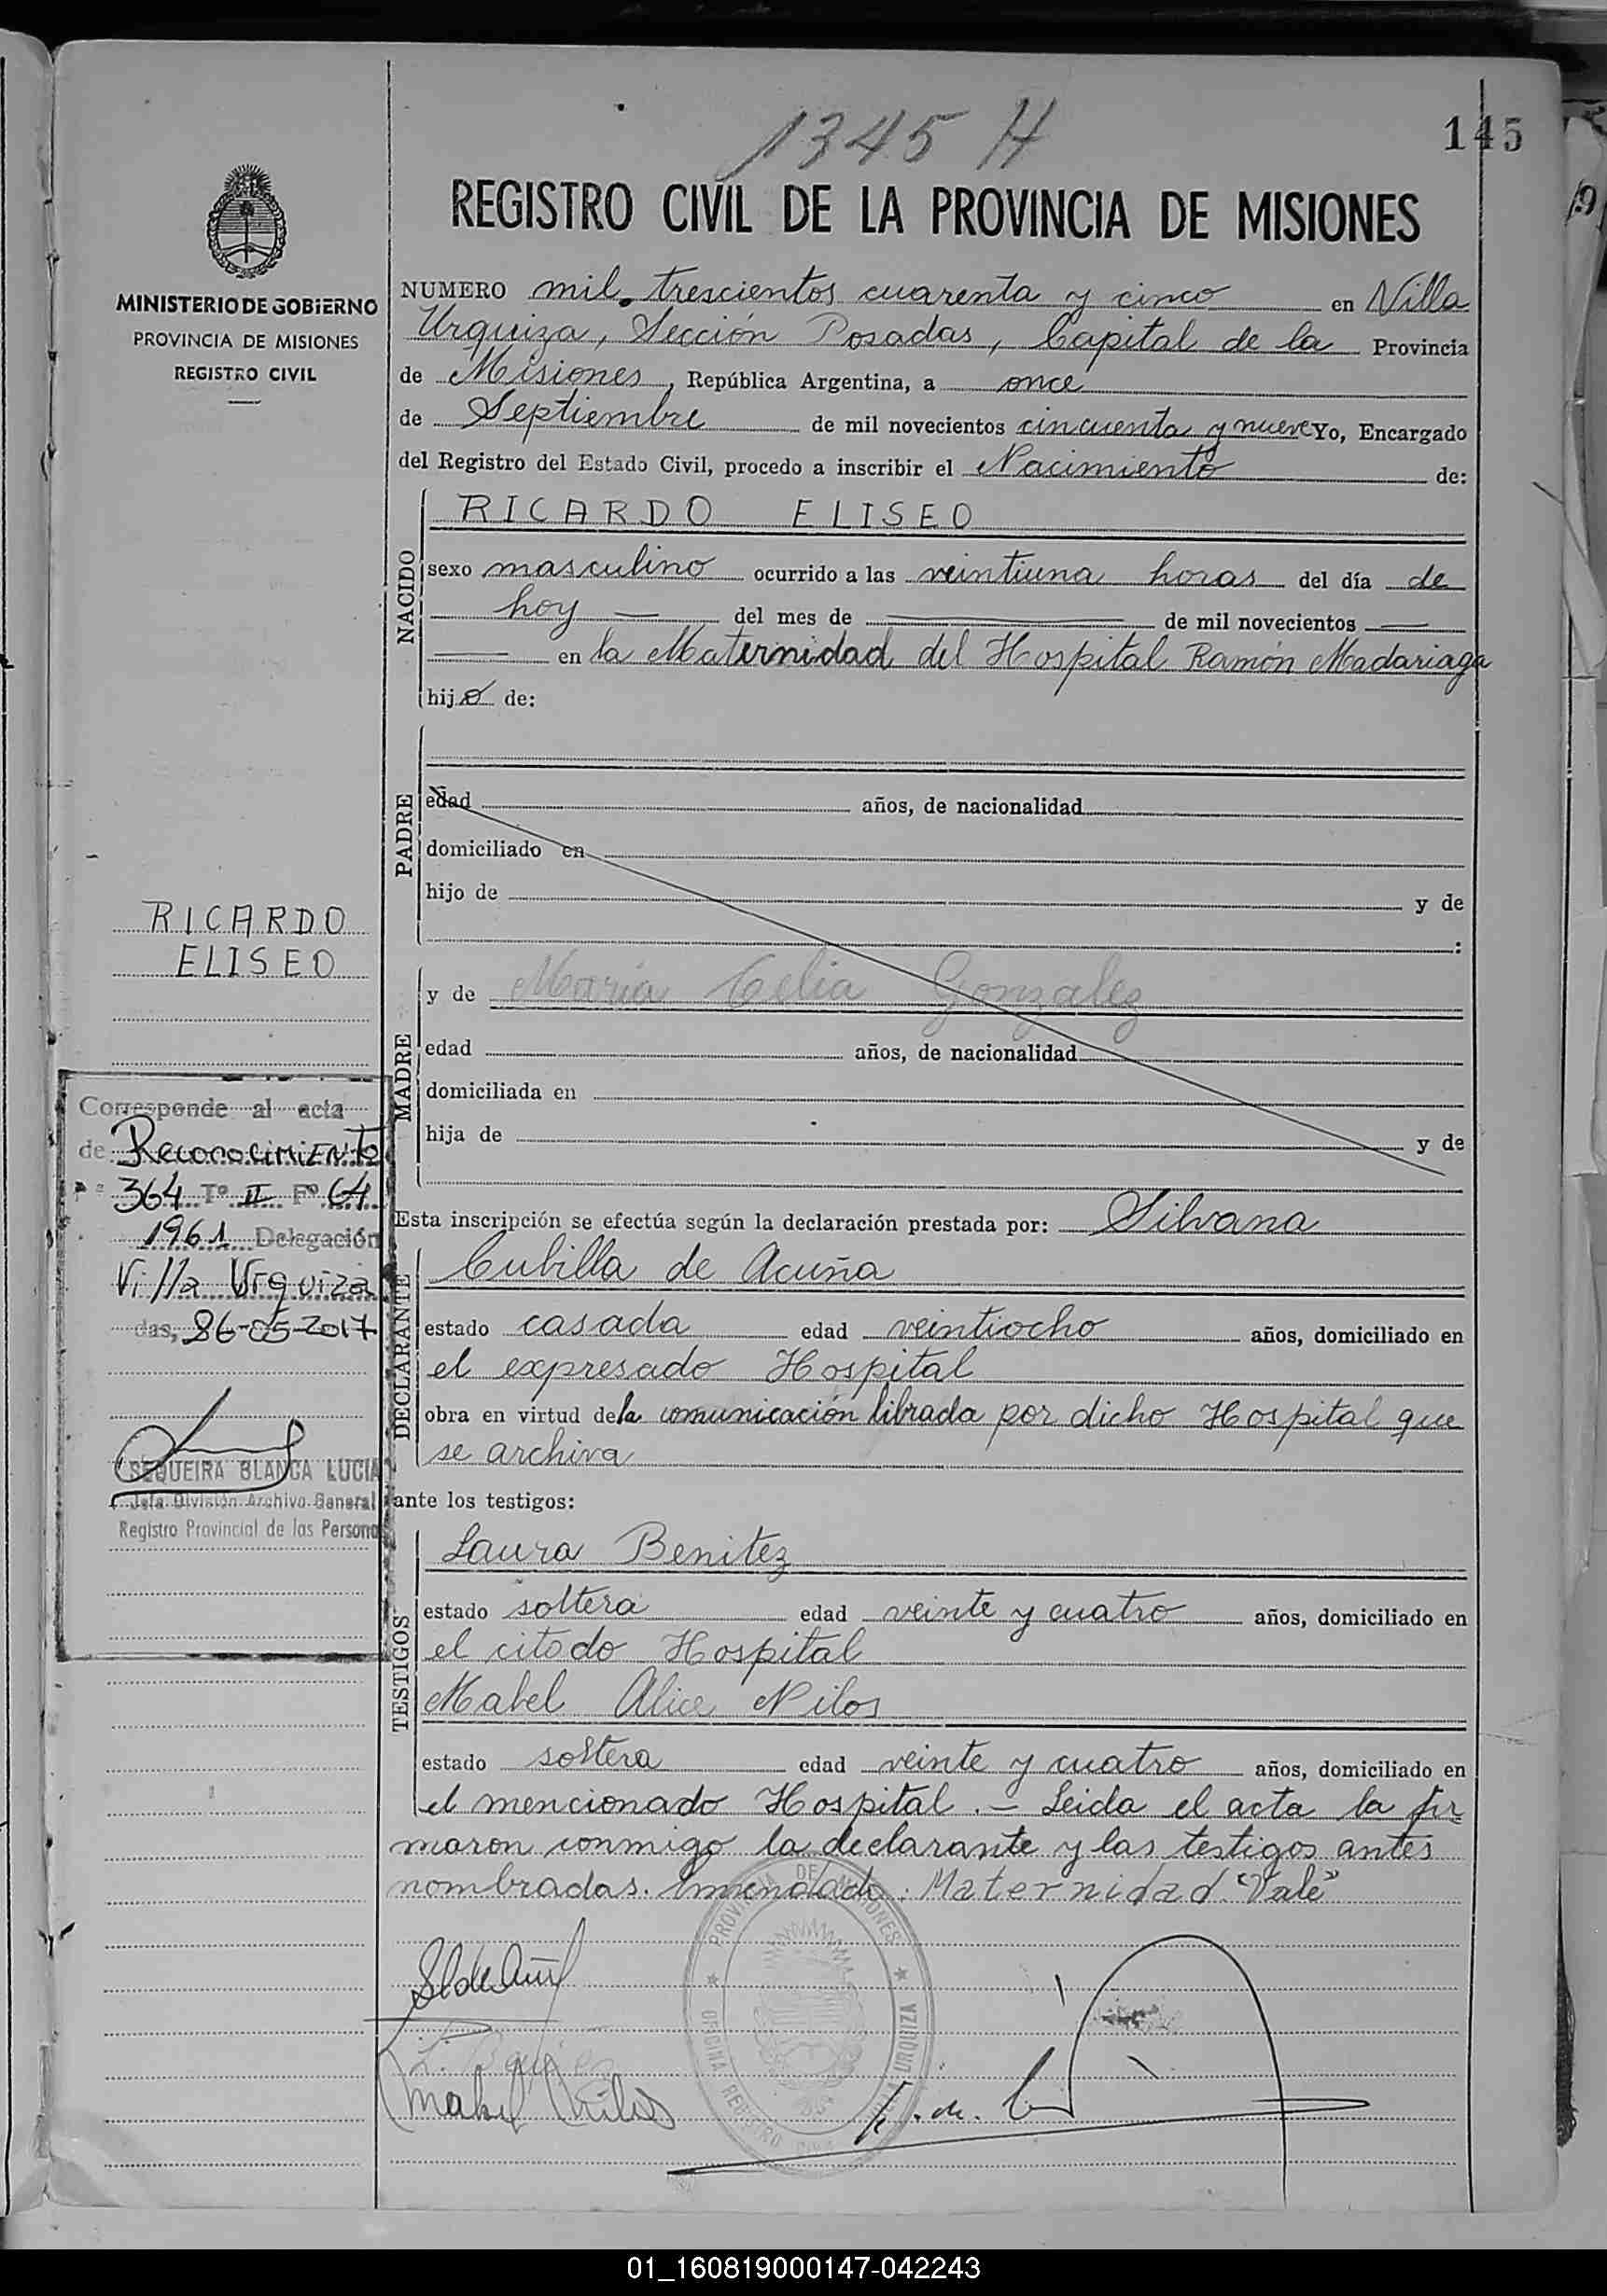 1345 H
145
REGISTRO CIVIL DE LA PROVINCIA DE MISIONES
MINISTERIO DE GOBIERNO
PROVINCIA DE MISIONES
REGISTRO CIVIL
NUMERO mil trescientos cuarenta y cinco en Villa
Urquiza, Sección Posadas, Capital de la Provincia
de Misiones, República Argentina, a once
de Septiembre de mil novecientos cincuenta y nueve Yo, Encargado
del Registro del Estado Civil, procedo a inscribir el Nacimiento de:
NACIDO
RICARDO ELISEO
sexo masculino ocurrido a las veintiuna horas del día de
hoy — del mes de — de mil novecientos —
— en la Maternidad del Hospital Ramón Madariaga
hijo de:
PADRE
edad años, de nacionalidad
domiciliado en
hijo de y de
:
MADRE
y de María Celia Gonzalez
edad años, de nacionalidad
domiciliada en
hija de y de
Esta inscripción se efectúa según la declaración prestada por: Silvana
DECLARANTE
Cubilla de Acuña
estado casada edad veintiocho años, domiciliado en
el expresado Hospital
obra en virtud de la comunicación librada por dicho Hospital que
se archiva
ante los testigos:
TESTIGOS
Laura Benitez
estado soltera edad veinte y cuatro años, domiciliado en
el citado Hospital
Mabel Alice Nilos
estado soltera edad veinte y cuatro años, domiciliado en
el mencionado Hospital. — Leida el acta la fir
maron conmigo la declarante y las testigos antes
nombradas. Enmendado: Maternidad "Vale"
Mabel Nilos
RICARDO
ELISEO
Corresponde al acta
de Reconocimiento
364 Tº II Fº 64
1961 Delegación
Villa Urquiza
das, 26-05-2017
SEQUEIRA BLANCA LUCIA
Jefa División Archivo General
Registro Provincial de las Persona
PROVINCIA DE MISIONES
OFICINA REGISTRO CIVIL
URQUIZA
01_160819000147-042243